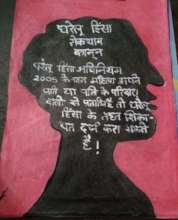 घरेलू हिंसा
रोकथाम
कानून
घरेलू हिंसा अधिनियम
2005 के तहत महिला अपने
पति या पति के परिवार
वालों से प्रताड़ित हो तो घरेलू
हिंसा के तहत शिका-
यत दर्ज करा सकते
है!